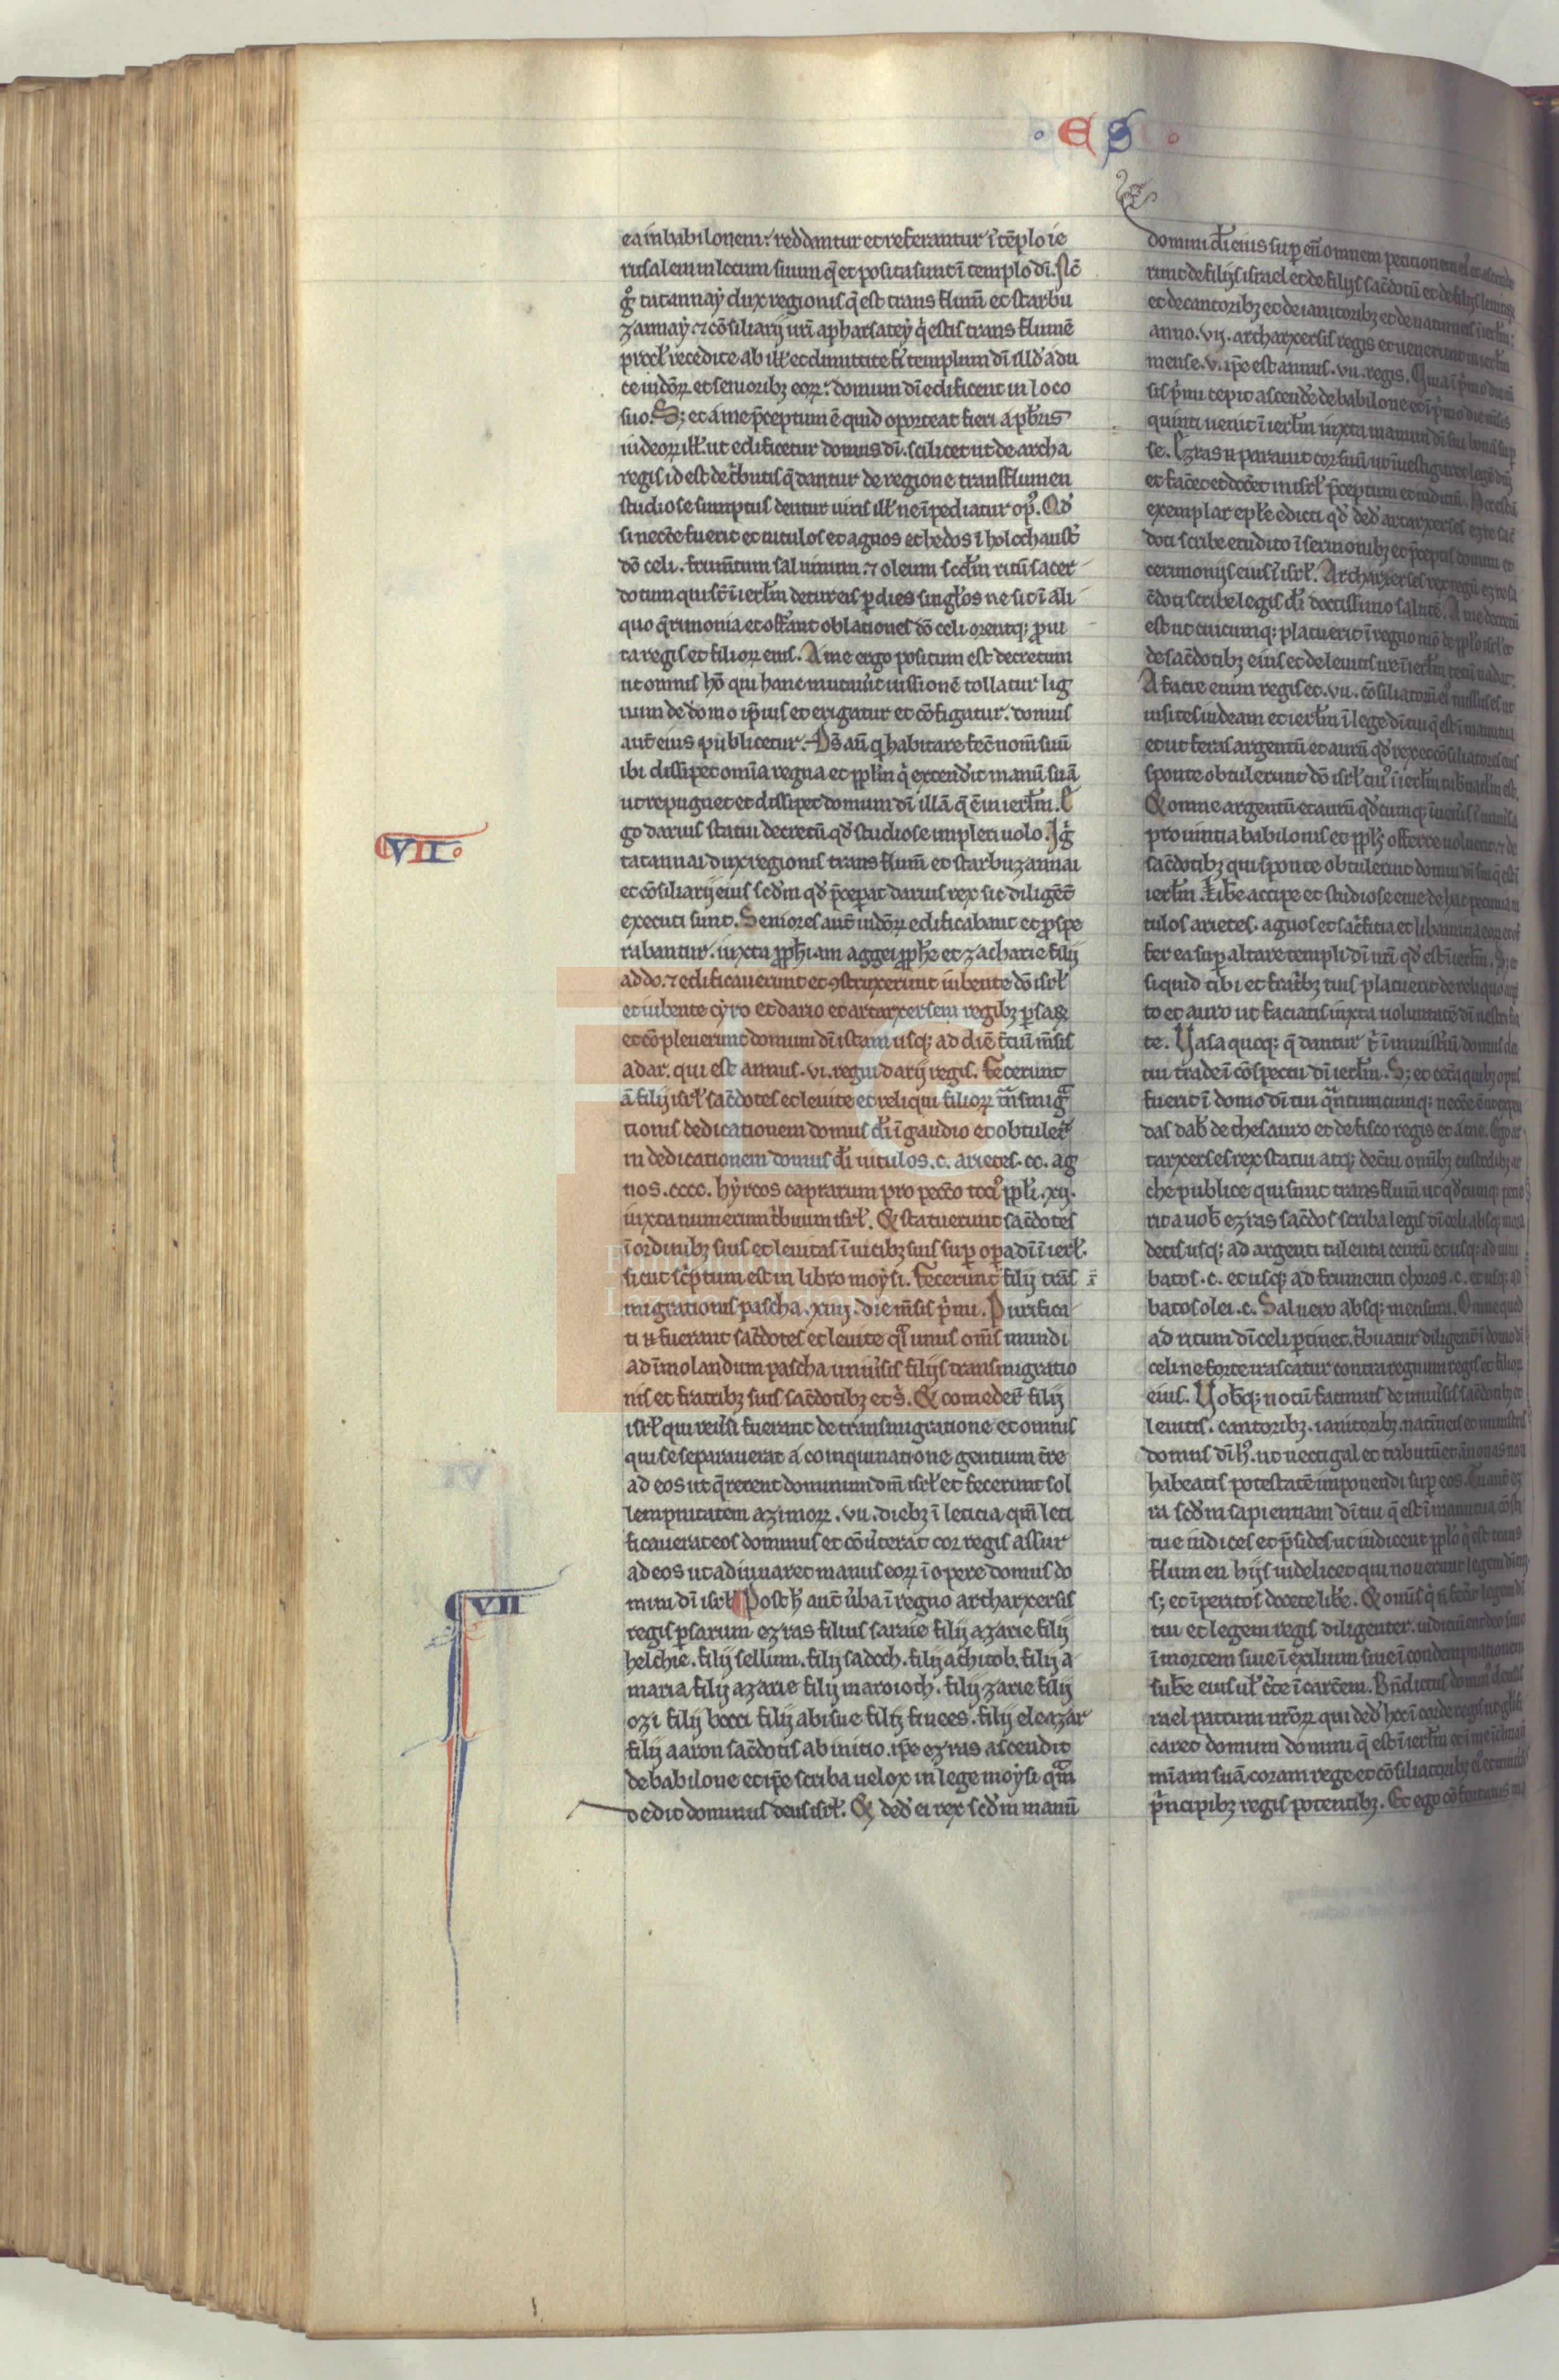 · E S ·
ea in babilonem: reddantur et referantur ī tēplo ie
rusalem in locum suum q̄ et posita sunt ī templo dī. Nc̄
gͦ tatannaẏ dux regionis q̄ est trans flumē et starbu
zannaẏ ⁊ cōsiliarij ur̄i apharsateẏ qͥ estis trans flumē
procł recedite ab ill̵ et dimittite fr̄ templum dī illd̵ a du
ce iudōꝝ et senioribꝫ eoꝝ: domum dī edificent in loco
suo. Sꝫ et a me p̄ceptum ē quid oporteat fieri a pb̄ris
iudeoꝝ ill̵. ut edificetur domus dī. scilicet ut de archa
regis id est de tͥbutis q̄ dantur de regione trans flumen
studiose sumptus dentur uiris ill̵ ne īpediatur opꝰ. Qd̵
si necc̄e fuerit et uitulos et agnos et hedos ī holochaust̄
dō celi. frum̄tum sal uinum. ⁊ oleum scdm̄ ritū sacer
dotum qui st̄ ī ierlm̄ detur eis ꝑ dies singl̵os ne sit ī ali
quo q̄rimonia et offāt oblationes dō celi orentqꝫ ꝓ ui
ta regis et filioꝝ eius. A me ergo positum est decretum
ut omnis hō qui hanc mutau̓it iussionē tollatur lig
num de domo ip̄ius et erigatur et cōfigatur. domus
aut̄ eius publicetur. Ds̄ aū q habitare fec̄ nom̄ suū
ibi dissipet om̄ia regna et ppl̄m qͥ extend̓it manū suā
ut repugnet et dissipet domum dī illā q̄ ē in ierlm̄. E
go darius statui decretū qd̵ studiose impleri uolo. Igͥ
tatannai dux regionis trans flum̄ et starbuzannai
et cōsiliarij eius scdm̄ qd̵ p̄cep̄at darius rex sic diligēt̄
executi sunt. Seniores aut̄ iudōꝝ edificabant et ꝓspe
rabantur. iuxta ꝓph̄iam aggei ꝓph̄e et zacharie filij
addo. ⁊ edificauerunt et ꝯstruxerunt iubente dō isrł
et iubente cẏro et dario et artarxersem regibꝫ ꝑsaꝝ
et cōpleuerunt domum dī istam usqꝫ ad diē t̄ciū m̄sis
adar. qui est annus. vi. regni darij regis. Fecerunt
ā filij isrł sac̄dotes et leuite et reliqui filioꝝ tͣnsmigͣ
tionis dedicationem domus d̄i ī gaudio et obtuler̄
in dedicationem domus d̄i uitulos. c. arietes. cc. ag
nos. cccc. hẏrcos caprarum pro pecc̄o tociꝰ ppl̄i. xij.
iuxta numerum tͥbuum isrł. Et statuerunt sac̄dotes
ī ordinibꝫ suis et leuitas ī uicibꝫ suis suꝑ oꝑa dī ī ierł.
sicut scͥptum est in libro moẏsi. Fecerunt filij trās
migrationis pascha. xiiij. die m̄sis pͥmi. Purifica
ti n̄ fuerant sac̄dotes et leuite qͣi unus om̄s mundi
ad īmolandum pascha uniu̓sis filijs transmigratio
nis et fratribꝫ suis sac̄dotibꝫ et s̓. Et comeder̄ filij
isrł qui reu̓si fuerant de transmigratione et omnis
qui se separauerat a coinquinatione gentium t̄re
ad eos ut q̄rerent dominum dm̄ isrł et fecerunt sol
lempnitatem azimoꝝ. vii. diebꝫ ī leticia qm̄ leti
ficauerat eos dominus et cōu̓terat cor regis assur
ad eos ut adiuuaret manus eoꝝ ī opere domus do
mini dī isrł Post h̄ aut̄ u̓ba ī regno artharxersis
regis ꝑsarum ezras filius saraie filij azarie filij
helchie. filij sellum. filij sadoch. filij achitob. filij a
maria filij azarie filij maroioth. filij zarie filij
ozi filij bocci filij abisue filij finees. filij eleazar
filij aaron sac̄dotis ab initio. ip̄e ezras ascendit
de babilone et ip̄e scriba uelox in lege moẏsi qͣm
dedit dominus deus isrł. Et ded̵ ei rex scdm̄ manū
VII
VII
domini d̄i eius suꝑ eū omnem petitionem eiꝰ et ascende
runt de filijs israel et de filijs sac̄dotū et de filijs leuitaꝝ
et de cantoribꝫ et de ianitoribꝫ et de natinneis ī ierlm̄:
anno. vij. artharxersis regis et uenerunt in ierlm̄
mense. v. ip̄e est annus. vii. regis. Quia ī pͥmo die m̄
sis pͥmi cepit ascend̓e de babilone et ī pͥmo die m̄sis
quinti uenit ī ierlm̄ iuxta manum dī sui bonā suꝑ
se. Ezras n̄ parauit cor suū ut īuestigaret legē dn̄i
et fac̄et et doc̄et in isrł p̄ceptum et iudiciū. Hec est ā
exemplar epl̄e edicti qd̵ ded̵ artarxerses ezre sac̄
doti scribe erudito ī sermonibꝫ et p̄ceptis domini et
cerimonijs eius ī isrł. Artharxerses rex regū ezre sa
c̄doti scribe legis d̄i doctissimo salutē. A me decretū
est ut cuicumqꝫ placuerit ī regno mō de pplō isrł et
de sac̄dotibꝫ eius et de leuitis ire ī ierlm̄ tecū uadat.
A facie enim regis et. vii. cōsiliatoꝝ eiꝰ missus es ut
uisites iudeam et ierlm̄ ī lege dī tui q̄ est ī manu tua
et ut feras argentū et aurū qd̵ rex et cōsiliatores eius
sponte obtulerunt dō isrł cuiꝰ ī ierlm̄ tab̄naclm̄ est.
Et omne argentū et aurū qd̵cumqꝫ īueneris ī uniu̓sa
prouintia babilonis et ppl̄s offerre uoluerit ⁊ de
sac̄dotibꝫ qui sponte obtulerint domui dī sui q̄ est ī
ierlm̄. Libe accipe et studiose eme de hac pecunia ui
tulos arietes. agnos et sacͥficia et libamina eoꝝ et of
fer ea suꝑ altare templi dī ur̄i qd̵ est ī ierlm̄. Sꝫ et
siquid tibi et frat̄bꝫ tuis placuerit de reliquo arḡ
to et auro ut faciatis iuxta uoluntatē dī uestri fa
te. Uasa quoqꝫ q̄ dantur tͥ ī minist̄iū domus dī
tui trade ī cōspectu dī ierlm̄. Sꝫ et cet̄a quibꝫ opus
fuerit ī domo dī tui qͣntumcumqꝫ necc̄e ē ut expen
das dab̵ de thesauro et de fisco regis et a me. Ego ar
tarxerses rex statui atqꝫ decͥui om̄ibꝫ custodibꝫ ar
che publice qui sunt trans flum̄ ut qd̵cumqꝫ petie
rit a uob̵ ezras sac̄dos scriba legis dī celi absqꝫ mora
detis usqꝫ ad argenti talenta centū et usqꝫ ad uini
batos. c. et usqꝫ ad frumenti choros. c. et usqꝫ ad
batos olei. c. Sal uero absqꝫ mensura. Omne quod
ad ritum dī celi ꝑtinet. tͥbuatur diligent̄ ī domo dī
celi ne forte irascatur contra regnum regis et filioꝝ
eius. Uob̵qꝫ notū facimus de uniu̓sis sac̄dotibꝫ et
leuitis. cantoribꝫ. ianitoribꝫ. natin̄eis et ministris
domus dī hꝰ. ut uectigal et tributū et ānonas non
habeatis potestatē imponendi suꝑ eos. Tu aut̄ ez
ra scdm̄ sapientiam dī tui q̄ est ī manu tua cōsti
tue iudices et p̄sides ut iudicent pplō qͥ est trans
flumen hijs uidelicet qui nouerunt legem dī tui
sꝫ et īperitos docete lib̵e. Et om̄is qͥ n̄ fec̄it legem dī
tui et legem regis diligenter. iudiciū erit de eo siue
ī mortem siue ī exilium siue ī condempnationem
sub̵e eius ul̵ c̄te ī carc̄em. Bn̄dictus dominꝰ deus is
rael patrum nr̄oꝝ qui ded̵ hoc ī corde regis ut gl̄ifi
caret domum domini q̄ est ī ierlm̄ et ī me īclinauit
mīam suā coram rege et cōsiliatoribꝫ eiꝰ et uniu̓sis
pͥncipibꝫ regis potentibꝫ. Et ego cōfortatus ma